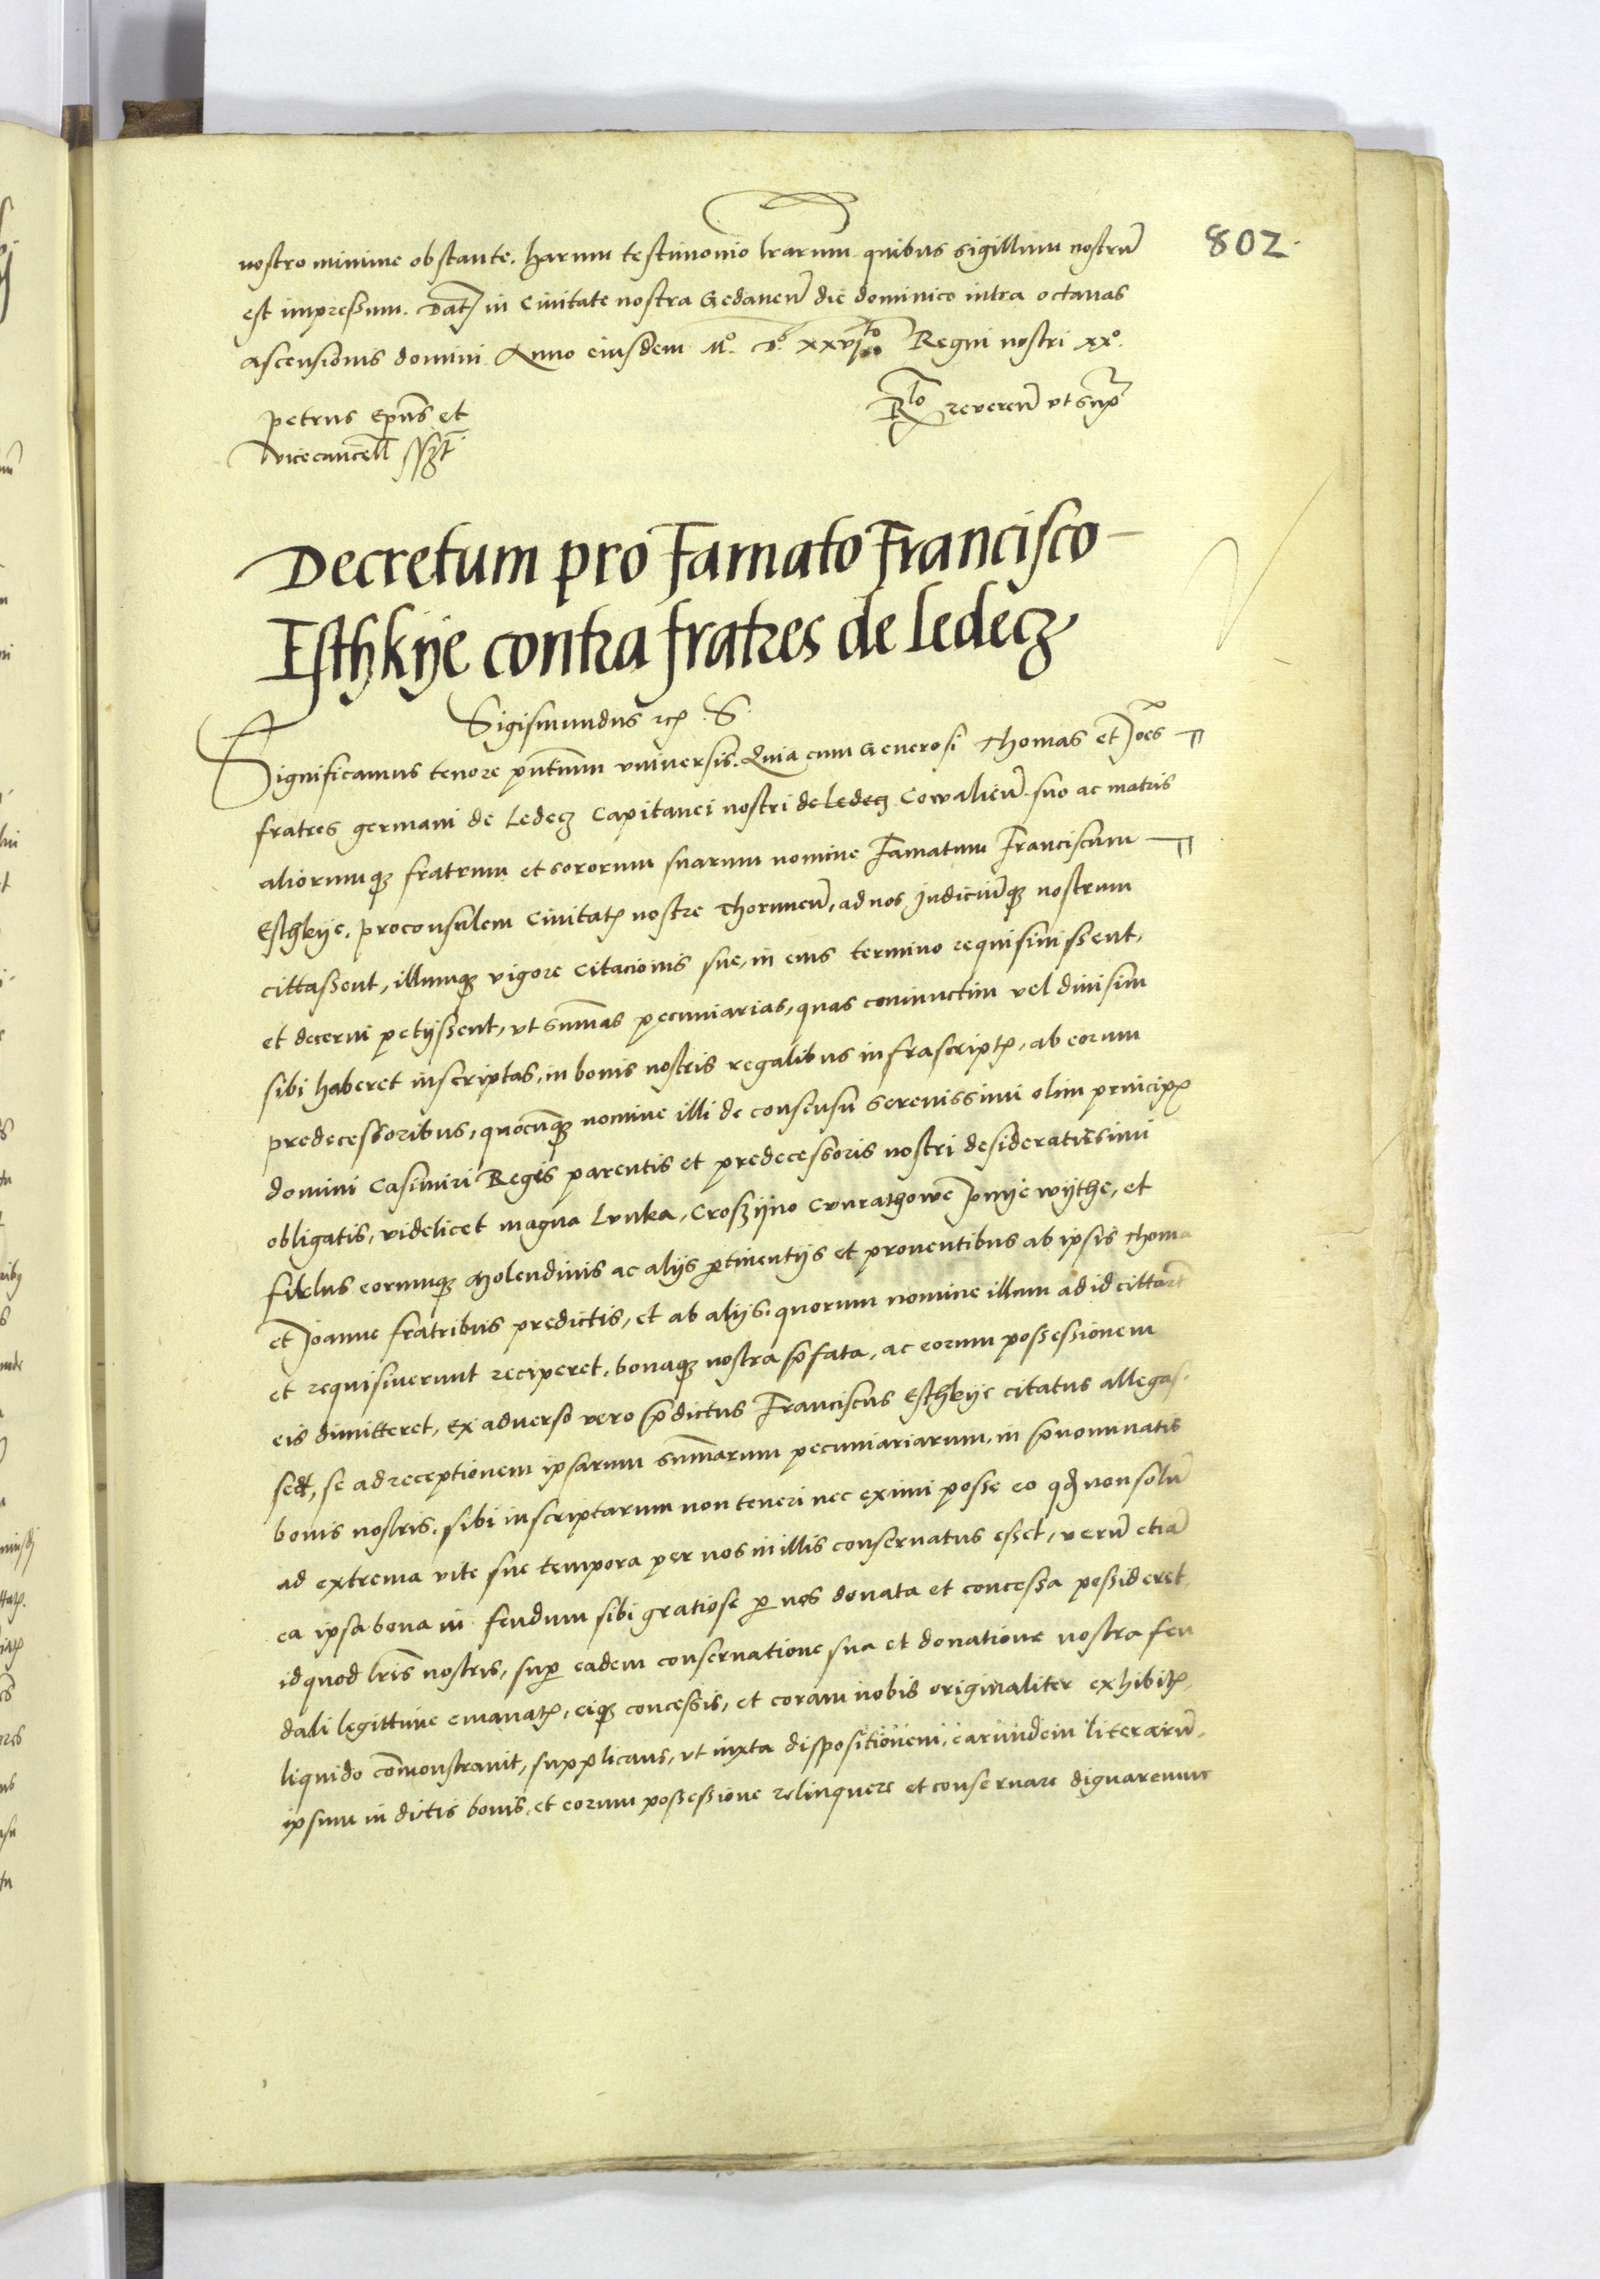 802
nostro minime obstante. harum testimonio lrarum quibus sigillum nostrũ
est impressum. Dat in Ciuitate nostra Gedaneñ die dominico intra octauas
Ascensionis domini Anno eiusdem M° D° xxvjto Regni nostri xx°.
Petrus Epũs et
vicecancell sszt
Rto reuereñ vt supᵃ
Decretum pro Famato Francisco
Esthkÿe contra fratres de Ledecz
Sigismundus rex S
Significamus tenore pñtium vniuersis. Quia cum Generosi Thomas et Joẽs
fratres germani de Ledecz Capitanei nostri de Ledecz Cowalieñ suo ac matris
aliorumqꝫ fratrum et sororum suarum nomine Famatum Franciscum
Esthkÿe, proconsulem Ciuitatꝭ nostre Thoruneñ, ad nos Judiciũqꝫ nostrum
cittassent, illumqꝫ vigore Citacionis sue, in eius termino requisiuissent,
et decerni petÿssent, vt sum̃as pecuniarias, quas coniunctim vel diuisim
sibi haberet inscriptas, in bonis nostris regalibus infrascriptꝭ, ab eorum
predecessoribus, quocũqꝫ nomine illi de consensu serenissimi olim principꝭ
domini Casimiri Regis parentis et predecessoris nostri desideratissimi
obligatis, videlicet magna Lunka, Croszÿno Cunrathowẽ Pnÿewÿthe, et
fiklus eorumqꝫ Molendinis ac alÿs ꝑtinentÿs et prouentibus ab ipsis Thoma
et Joanne fratribus predictis, et ab alÿs, quorum nomine illum ad id cittarũt
et requisiuerunt reciperet, bonaqꝫ nostra p̃fata, ac eorum possessionem
eis dimitteret, Ex aduerso vero p̃dictus Franciscus Esthkÿe citatus allegas-
set, se ad receptionem ipsarum sum̃arum pecuniariarum, in p̃nominatis
bonis nostris, sibi inscriptarum non teneri nec eximi posse eo qđ non solũ
ad extrema vite sue tempora per nos in illis conseruatus esset, verũ etiã
ea ipsa bona in feudum sibi gratiose ꝑ nos donata et concessa possideret,
id quod lrĩs nostris, sup̱ eadem conseruatione sua et donatione nostra feu
dali legittime emanatꝭ, eiqꝫ concessis, et coram nobis originaliter exhibitꝭ,
liquido com̃onstrauit, supplicans, vt iuxta dispositionem earundem literarũ,
ipsum in dictis bonis, et eorum possessione relinquere et conseruare dignaremur